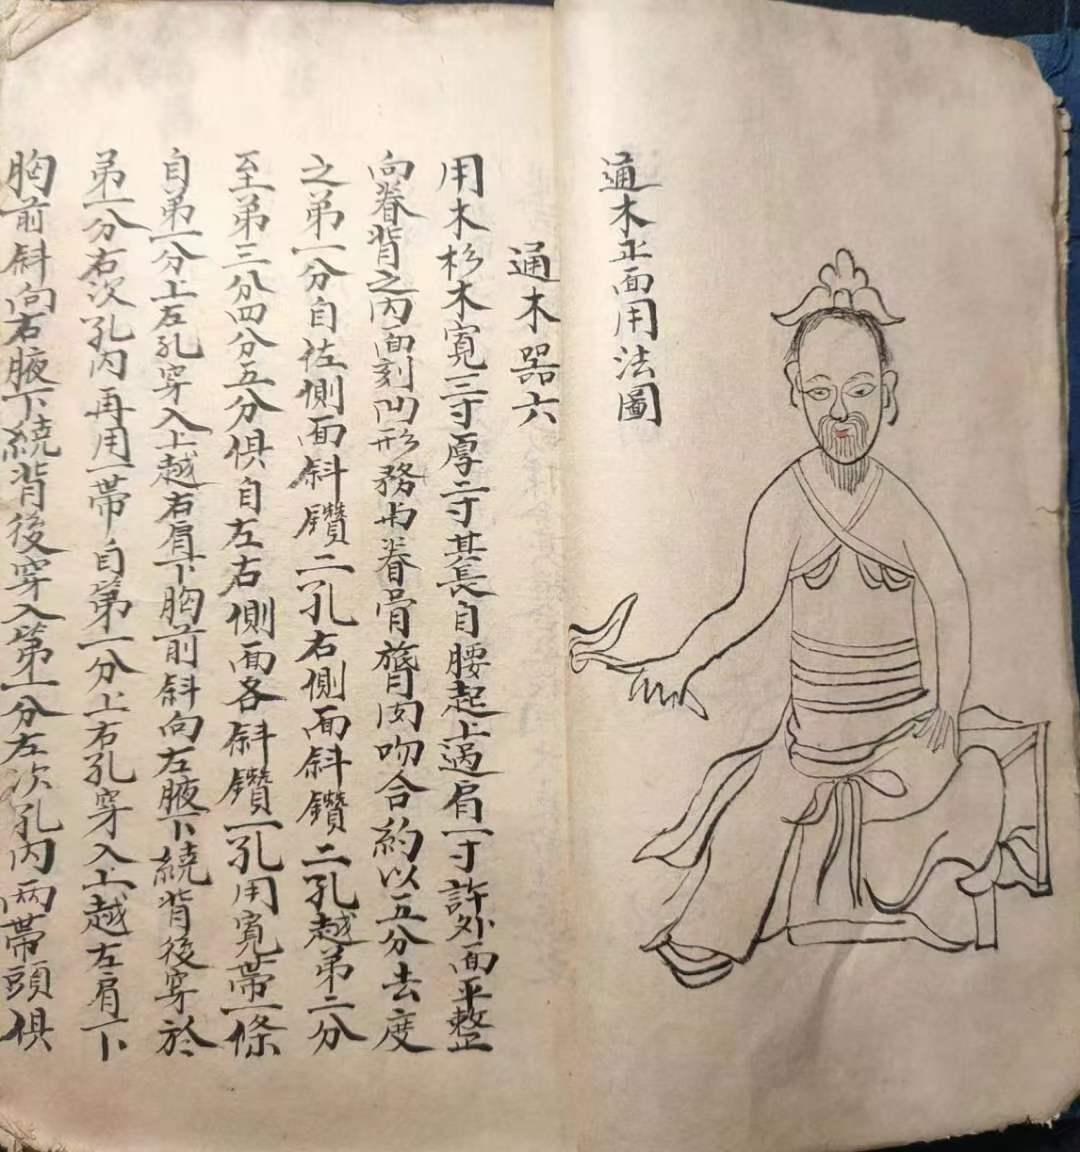 通木正面用法圖
通木器六
用木杉木寬三寸厚二寸其長自腰起上過肩一寸許外面平整
向脊背之内面刻凹形務与脊骨膂肉吻合約以五分去度
之弟一分自㐰側面斜鑽二孔右側面斜鑽二孔越弟二分
至弟三分四分五分俱自左右側面各斜鑽一孔用寬帶一條
自弟一分上左孔穿入上越右肩下胸前斜向左腋下繞背後穿於
弟一分右次孔内再用一帶自第一分上右孔穿入上越左肩下
胸前斜向右腋下繞背後穿入第一分左次孔内兩帶頭俱